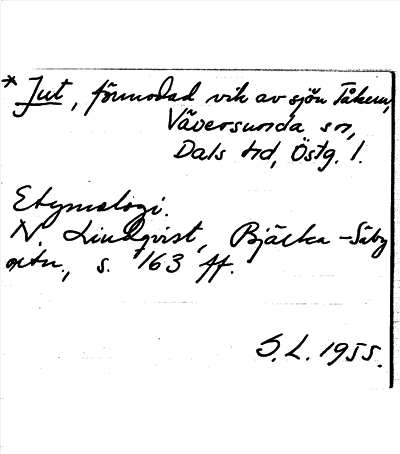 * Jut, förmodad vik av sjön Tåkern,
Väversunda sn,
Dals hd, Östg. l.
Etymologi.
N. Lindqvist, Bjälka-Säby
ortn., s. 163 ff.
S.L. 1955.